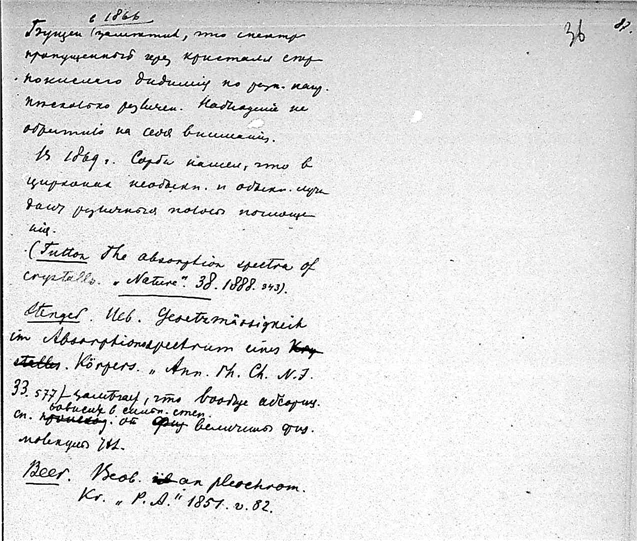 36 87.
в 1866
Бунзен заметил, что спектр
пропущенный через кристалл
дидимия по разн. нап.
несколько различен. Наблюдение не
обратило на себя внимания.
В 1869 г. Сорби нашел, что в
цирконах необыкн. и обыкн. лучи
дают различныя полосы поглоще
ния.
(Tutton The absorption spectra of
crystalls. „Nature". 38. 1888. 343).
Stenger. Ueb. Gesetzmässigkeit
im Absorptionsspectrum eines Kry
stalles. Körpers. „Ann. Ph. Ch. N.F.
33. 577) замечает, что вообще абсорпц.
зависит в сильн. степ.
сп. от величины физ.
молекулы
Beer. Beob. an pleochrom.
Kr. „P. A." 1851. v. 82.